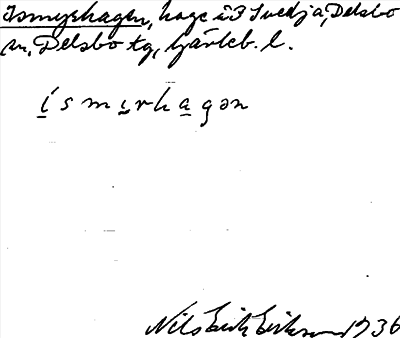 Ismyrhagen, hage i S Svedja, Delsbo
sn, Delsbo tg, Gävleb. l.
ismyrhagən
Nils Erik Eriksson 1936